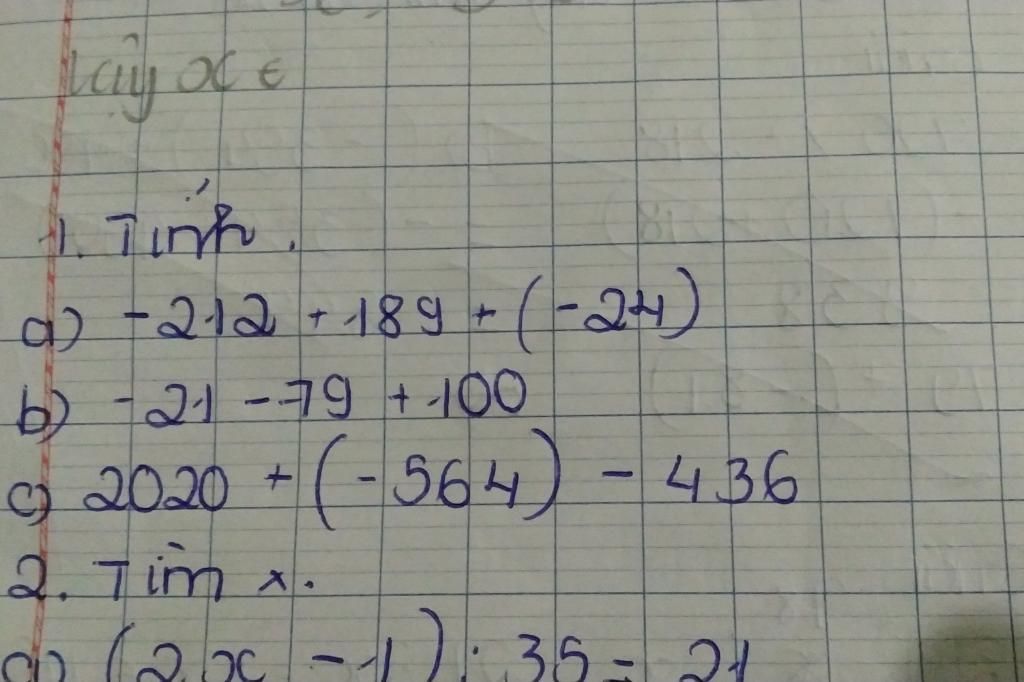 Vậy x ∈
1. Tính.
a) -212 + 189 + (-24)
b) -21 - 79 + 100
c) 2020 + (-564) - 436
2. Tìm x.
a) (2x - 1) : 35 = 21